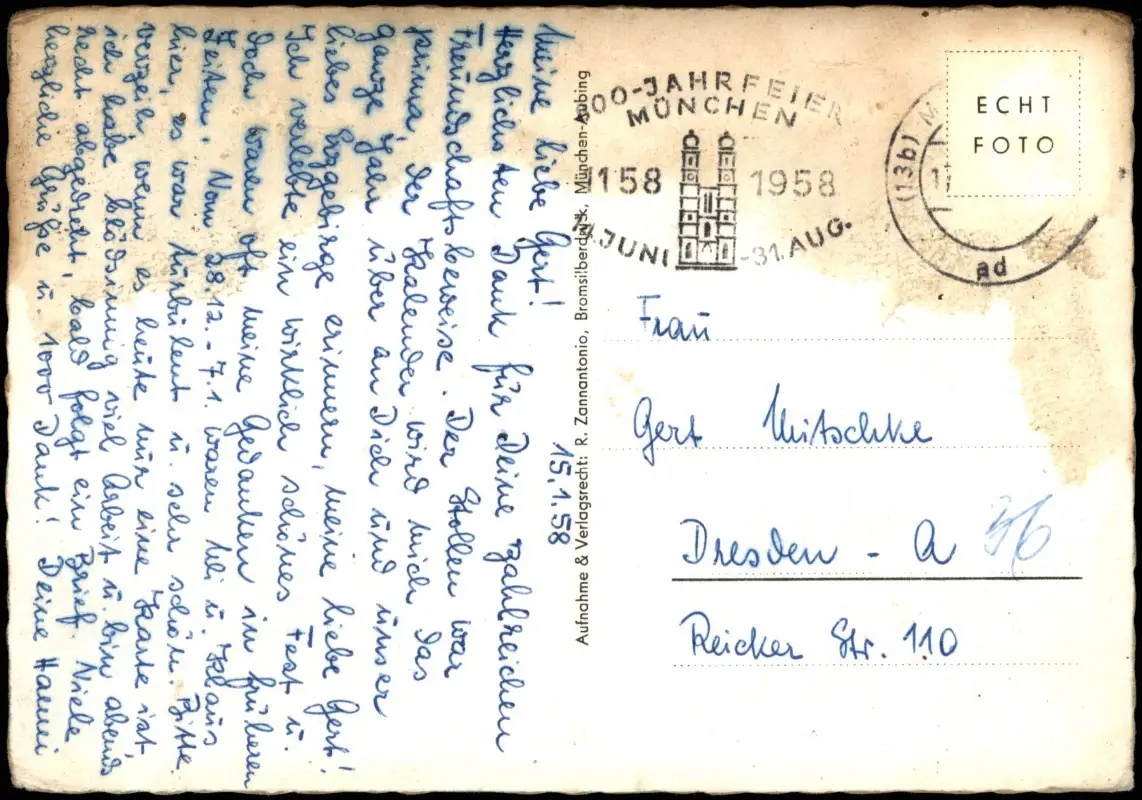 15.1.58
Meine liebe Gert!
Herzlichsten Dank für Deine zahlreichen
Freundschaftsbeweise. Der Stollen war
prima, der Kalender wird mich das
ganze Jahr über an Dich und unser
liebes Erzgebirge erinnern, meine liebe Gert!
Ich verlebte ein wirklich schönes Fest u.
doch waren oft meine Gedanken in früheren
Zeiten. Vom 28.12. - 7.1. waren wir u. Klaus
hier, es war turbulent u. sehr schön. Bitte
verzeih, wenn es heute nur eine Karte ist,
ich habe blödsinnig viel Arbeit u. bin abends
recht abgedreht, bald folgt ein Brief. Viele
herzliche Grüße u. 1000 Dank! Deine Hanni
Aufnahme & Verlagsrecht: R. Zannantonio, Bromsilberdruck, München-Aubing
800-JAHRFEIER
MÜNCHEN
1158 1958
14.JUNI -31.AUG.
(13b) M
ad
ECHT
FOTO
Frau
Gert Mitschke
Dresden - A 36
Reicker Str. 110